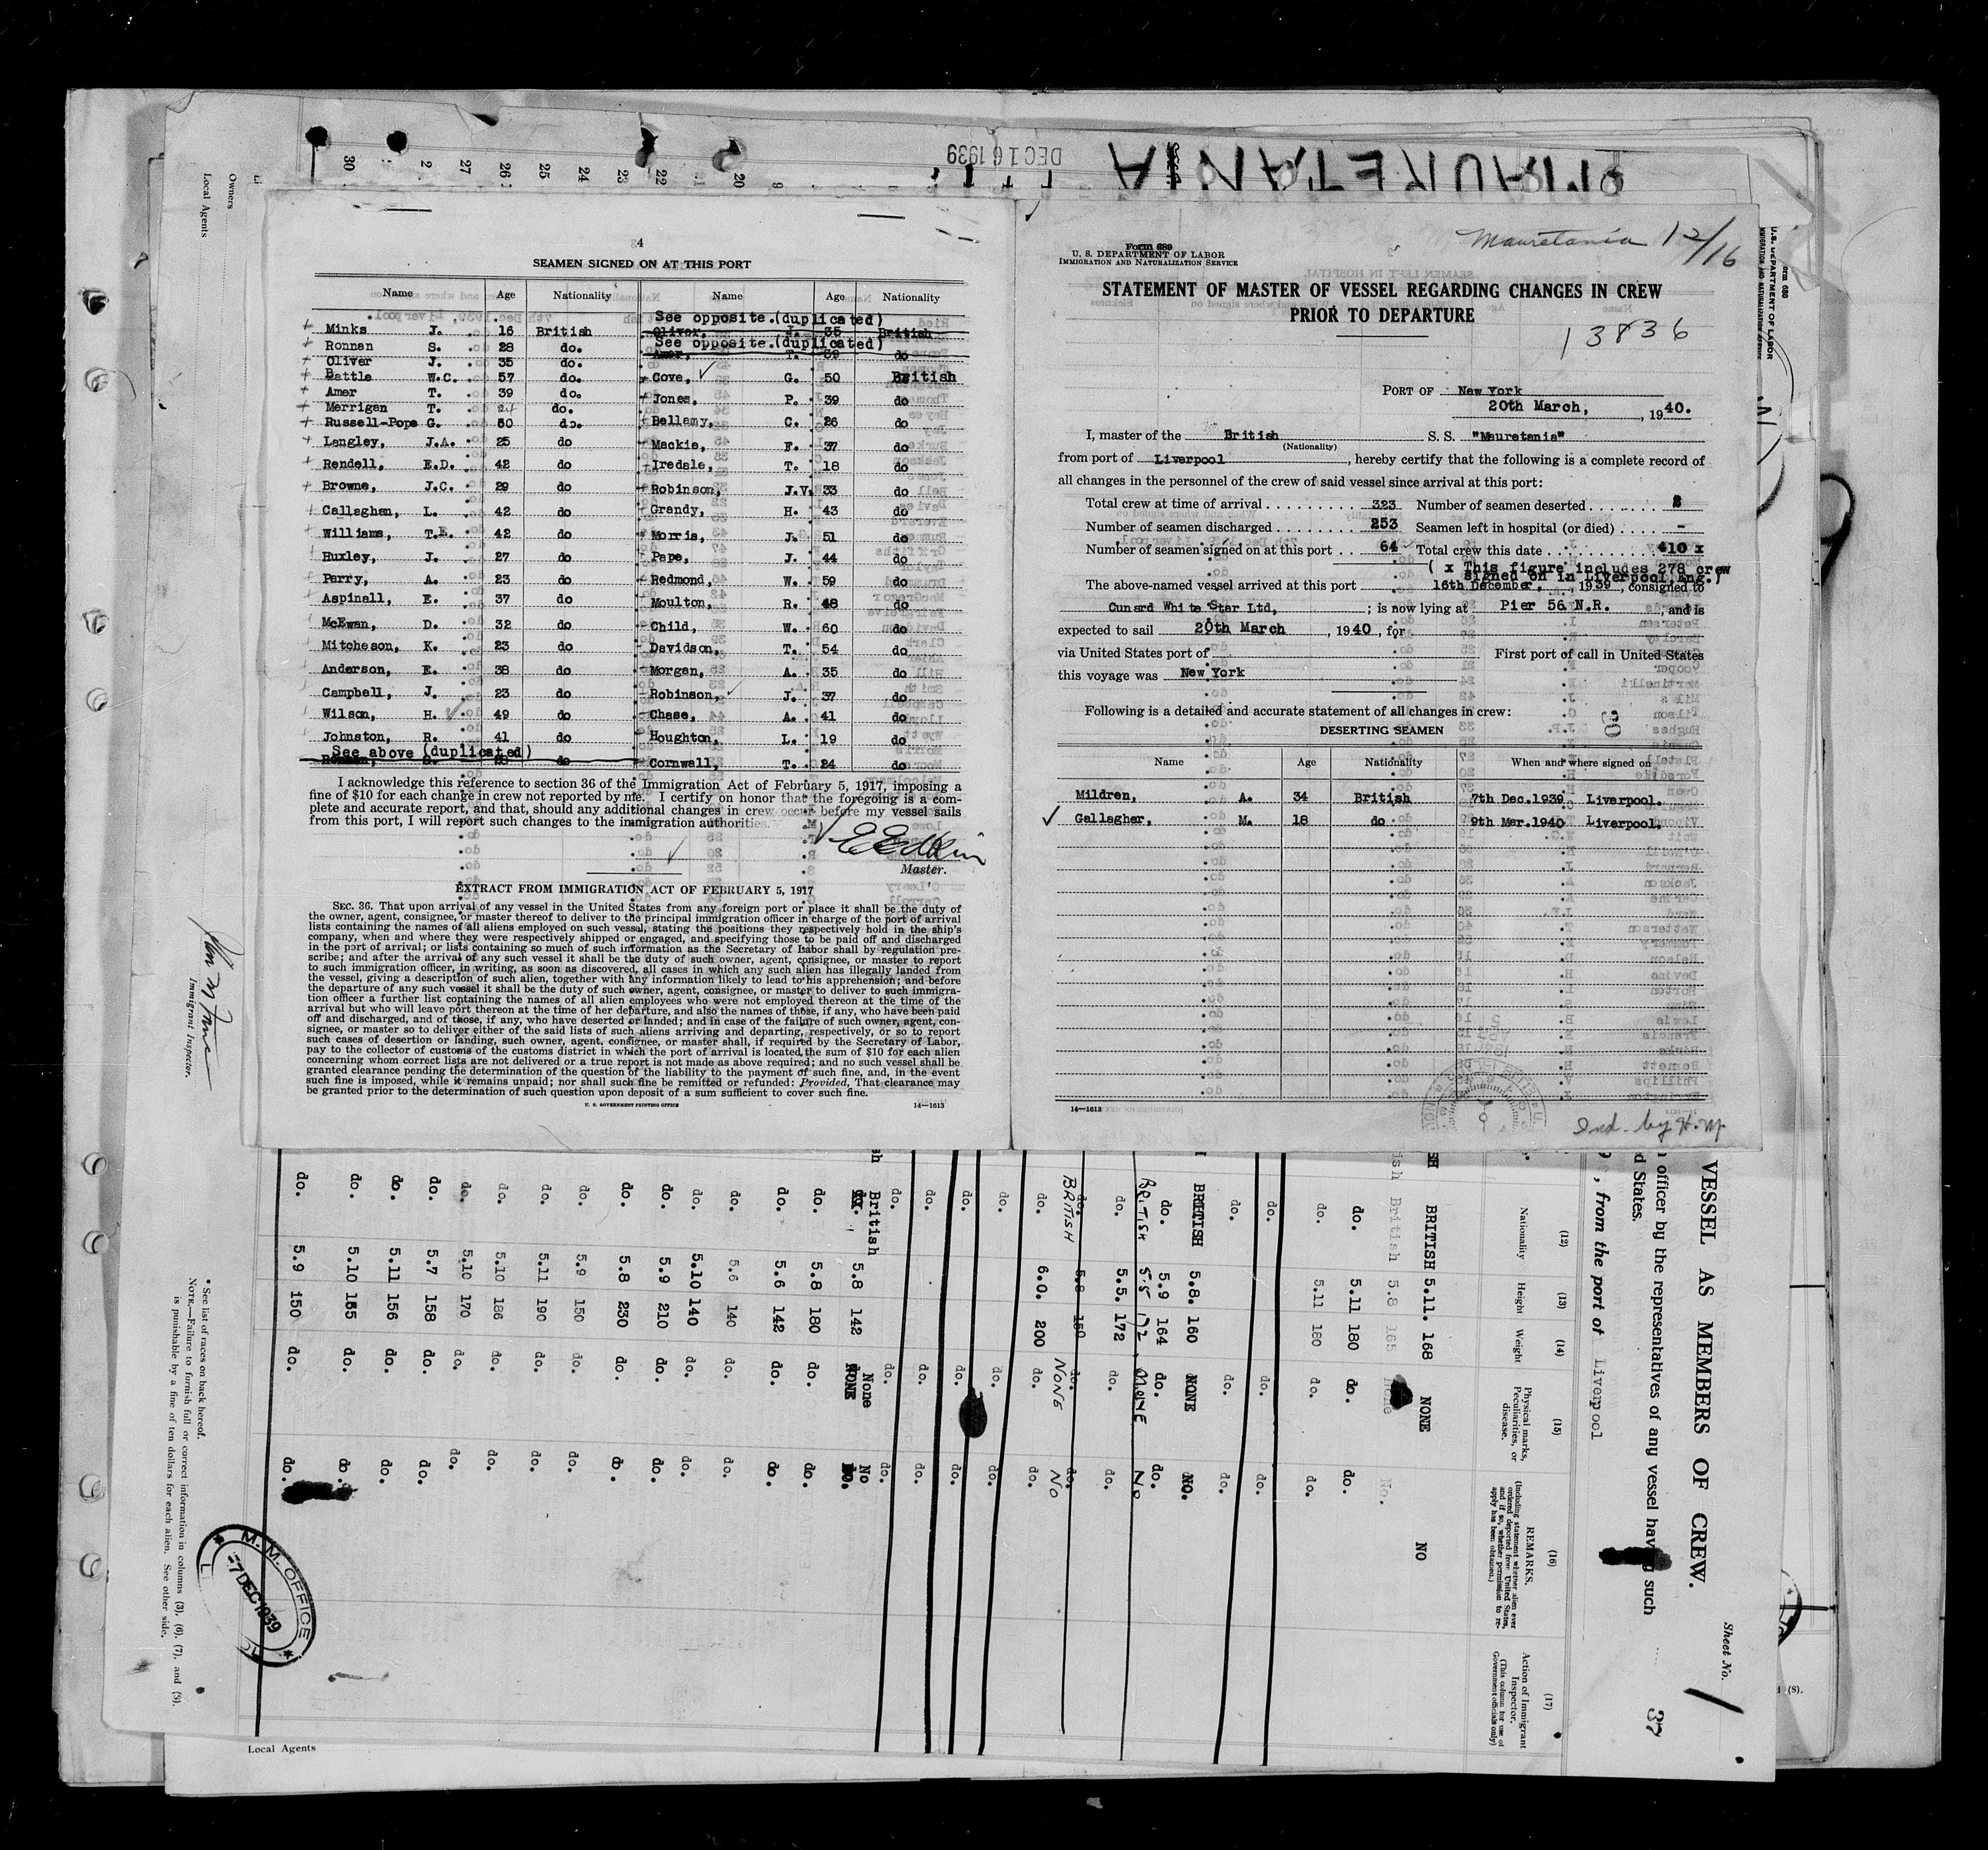 4
SEAMEN SIGNED ON AT THIS PORT
Name Age Nationality Name Age Nationality
See opposite.(duplicated)
Minks J. 16 British Oliver, J. 35 British
Ronnan S. 28 do. See opposite.(duplicated)
Oliver J. 35 do. Amer, T. 39 do
Battle W.C. 57 do. Cove, G. 50 British
Amer T. 39 do. Jones, P. 39 do
Merrigan T. do.
Russell-Pope G. 50 do. Bellamy, C. 26 do
Langley, J.A. 25 do Mackie, F. 37 do
Rendell, E.D. 42 do Iredale, T. 18 do
Browne, J.C. 29 do Robinson, J.V. 33 do
Callaghan, L. 42 do Grandy, H. 43 do
Williams, T.E. 42 do Morris, J. 51 do
Huxley, J. 27 do Pape, J. 44 do
Parry, A. 23 do Redmond, W. 59 do
Aspinall, E. 37 do Moulton, R. 48 do
McEwan, D. 32 do Child, W. 60 do
Mitcheson, K. 23 do Davidson, T. 54 do
Anderson, E. 38 do Morgan, A. 35 do
Campbell, J. 23 do Robinson, J. 37 do
Wilson, H. 49 do Chase, A. 41 do
Johnston, R. 41 do Houghton, L. 19 do
See above (duplicated)
Ronnan, S. 28 do Cornwall, T. 24 do
I acknowledge this reference to section 36 of the Immigration Act of February 5, 1917, imposing a
fine of $10 for each change in crew not reported by me. I certify on honor that the foregoing is a com-
plete and accurate report, and that, should any additional changes in crew occur before my vessel sails
from this port, I will report such changes to the immigration authorities.
Master.
EXTRACT FROM IMMIGRATION ACT OF FEBRUARY 5, 1917
SEC. 36. That upon arrival of any vessel in the United States from any foreign port or place it shall be the duty of
the owner, agent, consignee, or master thereof to deliver to the principal immigration officer in charge of the port of arrival
lists containing the names of all aliens employed on such vessel, stating the positions they respectively hold in the ship's
company, when and where they were respectively shipped or engaged, and specifying those to be paid off and discharged
in the port of arrival; or lists containing so much of such information as the Secretary of Labor shall by regulation pre-
scribe; and after the arrival of any such vessel it shall be the duty of such owner, agent, consignee, or master to report
to such immigration officer, in writing, as soon as discovered, all cases in which any such alien has illegally landed from
the vessel, giving a description of such alien, together with any information likely to lead to his apprehension; and before
the departure of any such vessel it shall be the duty of such owner, agent, consignee, or master to deliver to such immigra-
tion officer a further list containing the names of all alien employees who were not employed thereon at the time of the
arrival but who will leave port thereon at the time of her departure, and also the names of those, if any, who have been paid
off and discharged, and of those, if any, who have deserted or landed; and in case of the failure of such owner, agent, con-
signee, or master so to deliver either of the said lists of such aliens arriving and departing, respectively, or so to report
such cases of desertion or landing, such owner, agent, consignee, or master shall, if required by the Secretary of Labor,
pay to the collector of customs of the customs district in which the port of arrival is located the sum of $10 for each alien
concerning whom correct lists are not delivered or a true report is not made as above required; and no such vessel shall be
granted clearance pending the determination of the question of the liability to the payment of such fine, and, in the event
such fine is imposed, while it remains unpaid; nor shall such fine be remitted or refunded: Provided, That clearance may
be granted prior to the determination of such question upon deposit of a sum sufficient to cover such fine.
U. S. GOVERNMENT PRINTING OFFICE 14—1613
Mauretania 12/16
Form 689
U. S. DEPARTMENT OF LABOR
IMMIGRATION AND NATURALIZATION SERVICE
STATEMENT OF MASTER OF VESSEL REGARDING CHANGES IN CREW
PRIOR TO DEPARTURE
13836
PORT OF New York
20th March, , 1940.
I, master of the British S. S. "Mauretania"
(Nationality)
from port of Liverpool , hereby certify that the following is a complete record of
all changes in the personnel of the crew of said vessel since arrival at this port:
Total crew at time of arrival 323 Number of seamen deserted 2
Number of seamen discharged 253 Seamen left in hospital (or died) -
Number of seamen signed on at this port 64 Total crew this date 410 x
( x This figure includes 278 crew
signed on in Liverpool, Eng.)
The above-named vessel arrived at this port 16th December, , 1939 , consigned to
Cunard White Star Ltd, ; is now lying at Pier 56 N.R. , and is
expected to sail 20th March , 1940 , for
via United States port of First port of call in United States
this voyage was New York
Following is a detailed and accurate statement of all changes in crew:
DESERTING SEAMEN
Name Age Nationality When and where signed on
Mildren, A. 34 British 7th Dec.1939 Liverpool.
Gallagher, M. 18 do 9th Mar.1940 Liverpool.
14—1613
Ind. by H.M
DEC 16 1939
MAURETANIA
30 27 26 25 24 23 22 20
Owners
Local Agents
Immigrant Inspector.
* See list of races on back hereof.
NOTE.—Failure to furnish full or correct information in columns (3), (6), (7), and (8),
is punishable by a fine of ten dollars for each alien. See other side.
M. M. OFFICE
7 DEC 1939
Local Agents
Sheet No. 1
37
VESSEL AS MEMBERS OF CREW.
officer by the representatives of any vessel having such
d States.
, from the port of Liverpool
(12) (13) (14) (15) (16) (17)
Nationality
Height
Weight
Physical marks, Peculiarities, or disease.
REMARKS.
(Including statement whether alien ever ordered deported from United States, and if so, whether permission to re-apply has been obtained.)
Action of Immigrant Inspector.
(This column for use of Government officials only)
BRITISH 5.11. 168 NONE NO
British 5.8 165 None No.
do. 5.11 180 do. do.
do. 5.11 180 do. do.
do. do. do.
do. do. do.
BRITISH 5.8. 160 NONE NO.
do. 5.9 164 do. do.
BRITISH 5.5 172 NONE NO
do. 5.5. 172 do. do.
do. 5.8 150 do. do.
BRITISH NONE NO
do. 6.0. 200 do. do.
do. do. do.
do. do. do.
do. do. do.
do. do. do.
British 5.8 142 None No
do. 5.8 180 do. do.
do. 5.6 142 do. do.
do. 5.6 140 do. do.
do. 5.10 140 do. do.
do. 5.9 210 do. do.
do. 5.8 230 do. do.
do. 5.9 150 do. do.
do. 5.11 190 do. do.
do. 5.10 186 do. do.
do. 5.10 170 do. do.
do. 5.7 158 do. do.
do. 5.11 156 do. do.
do. 5.10 155 do. do.
do. 5.9 150 do. do.